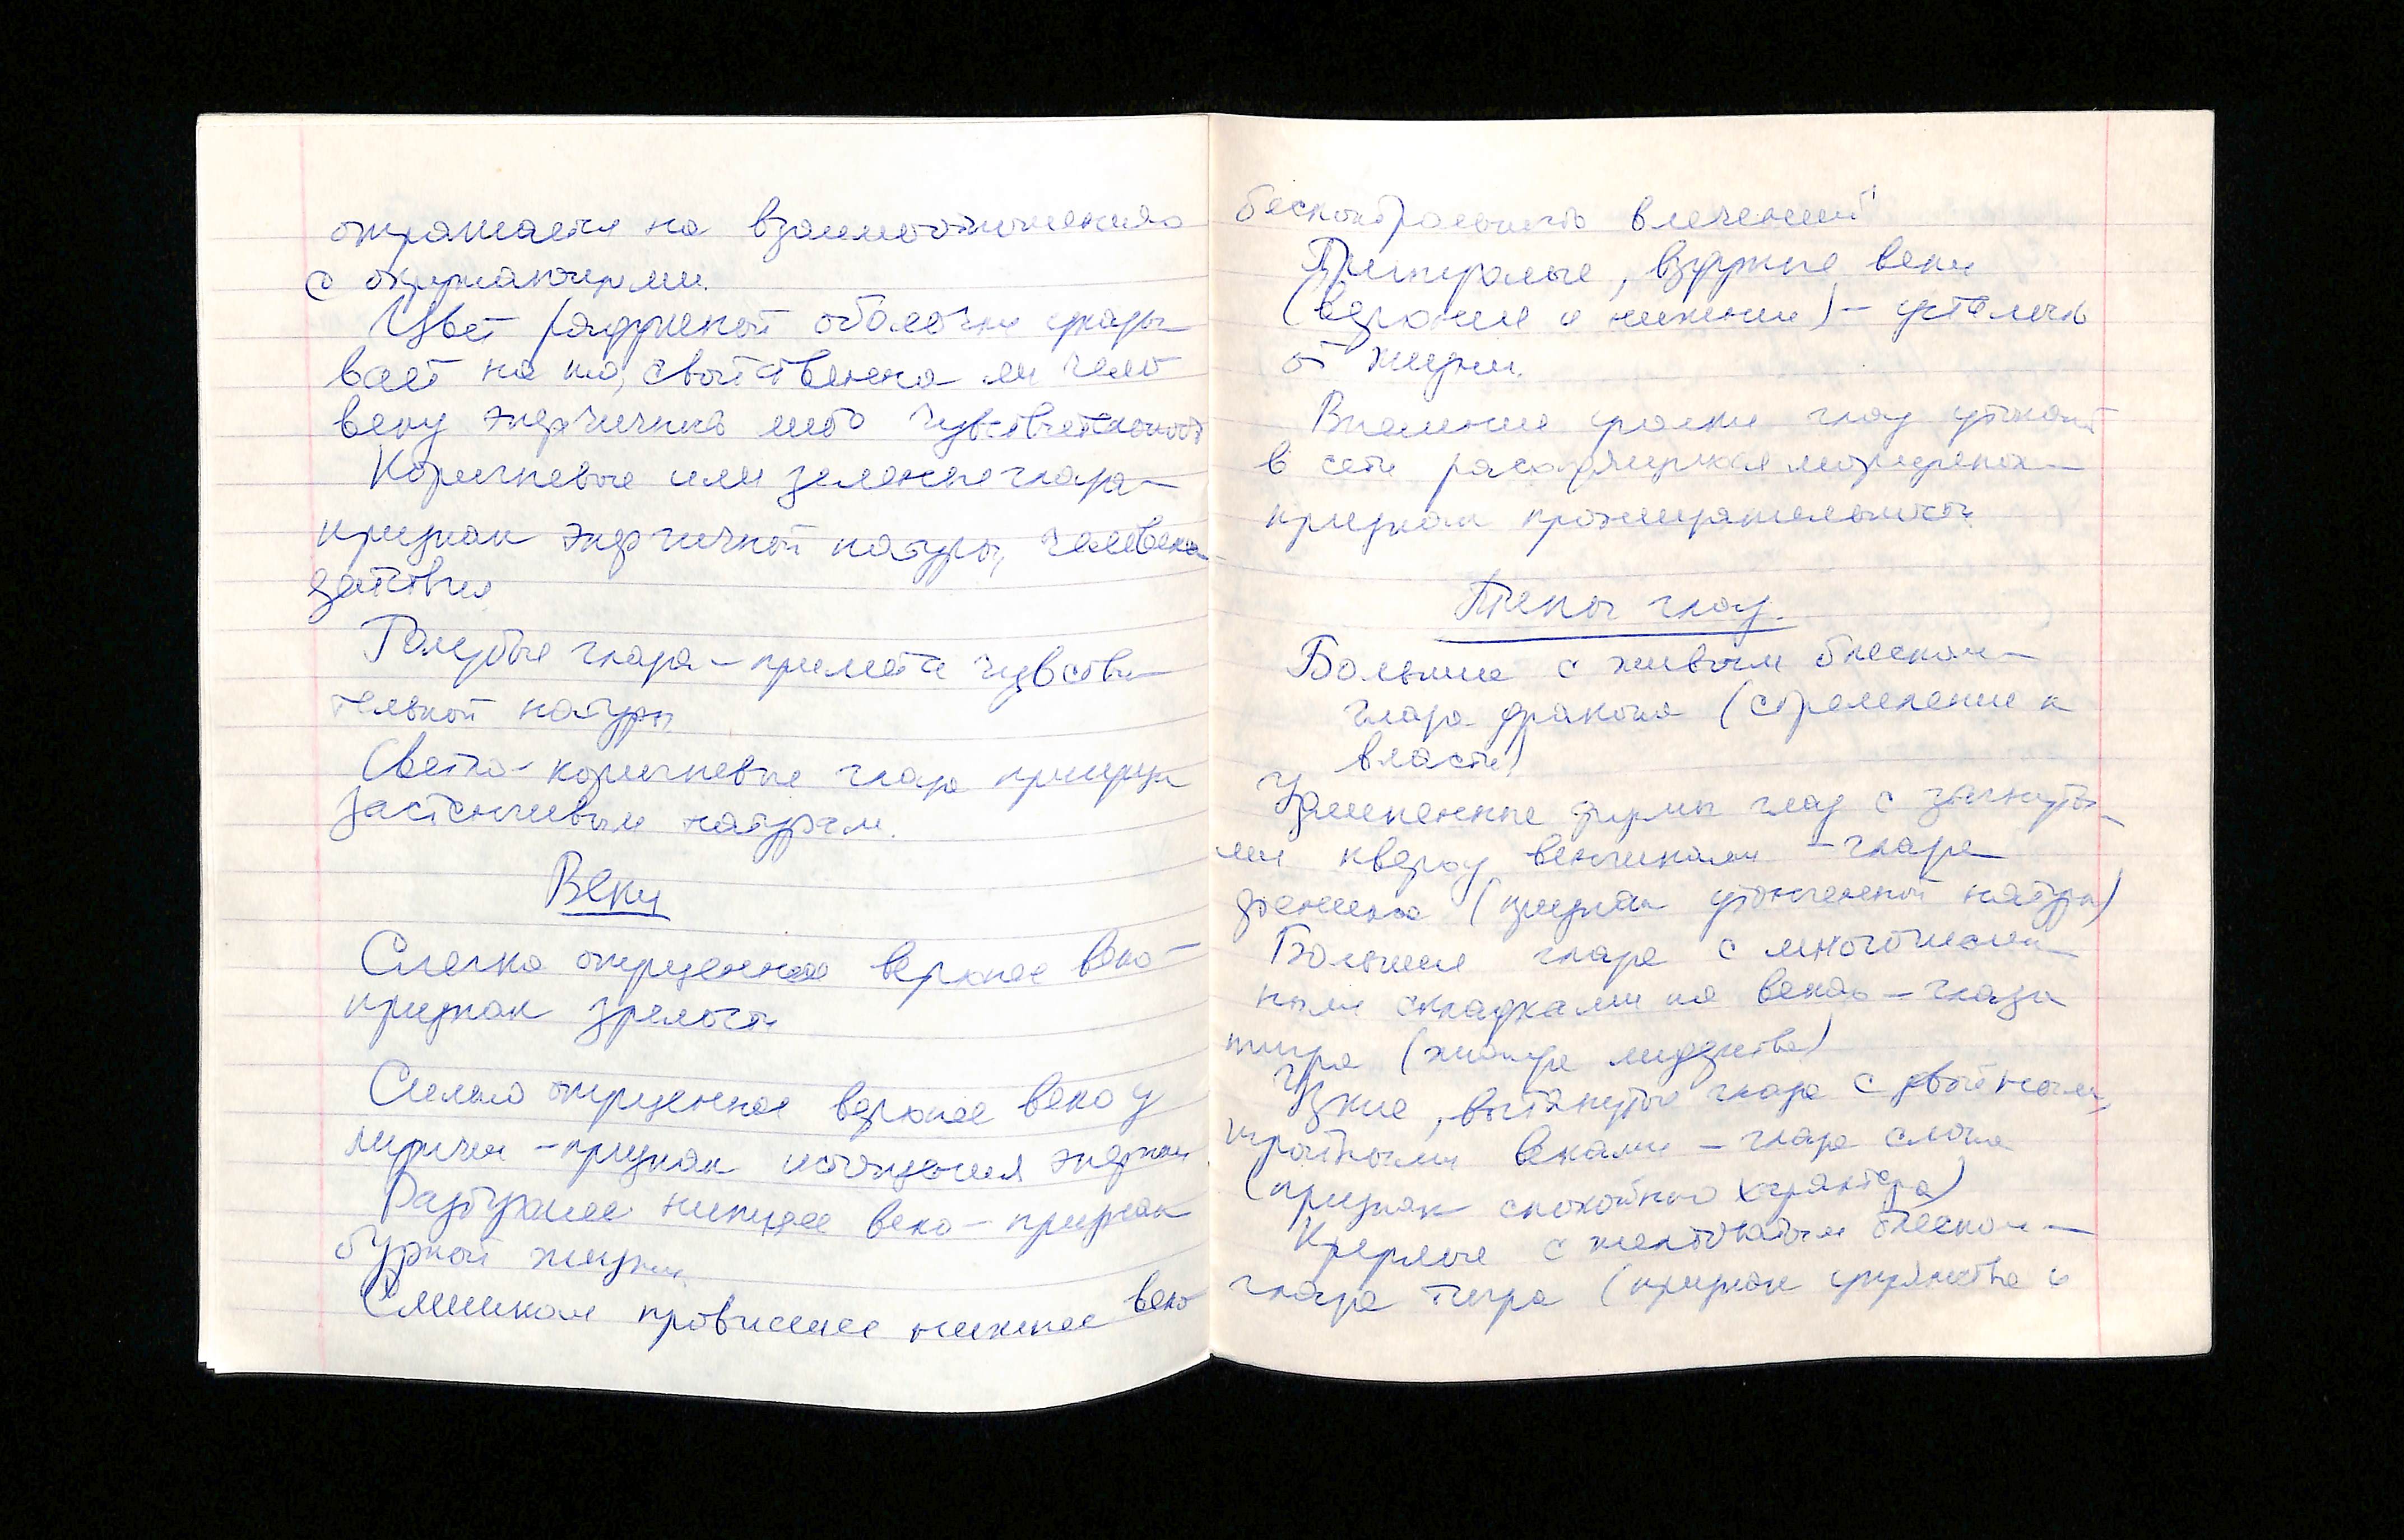 отражается на взаимоотношениях
с окружающими.
Цвет радужной оболочки указы
вает на то, свойственна ли чело
веку энергичность либо чувствительность
Коричневые или зеленые глаза –
признак энергичной натуры, человека
действия
Голубые глаза – примета чувстви
тельной натуры
Светло-коричневые глаза присущи
застенчивым натурам.
Веки
Слегка опущенное верхнее веко –
признак зрелости
Сильно опущенное верхнее веко у
мужчин – признак истощения энергии
Разбухшее нижнее веко – признак
бурной жизни
Слишком провисшее нижнее веко
бесконтрольность влечений
Припухлые, вздутые веки
(верхние и нижние) – усталость
от жизни.
Внешние уголки глаз утопают
в сети расходящихся морщинок –
признак проницательности
Типы глаз.
Большие с живым блеском –
глаза дракона (стремление к
власти)
Удлиненные формы глаз с загнуты-
ми кверху кончиками – глаза
феникса (признак утонченной натуры)
Большие глаза с многочислен
ными складками на веках – глаза
тигра (жажда лидерства)
Узкие, вытянутые глаза с двойными,
тройными веками – глаза слона
(признак спокойного характера)
Круглые с желтоватым блеском –
глаза тигра (признак упрямства и